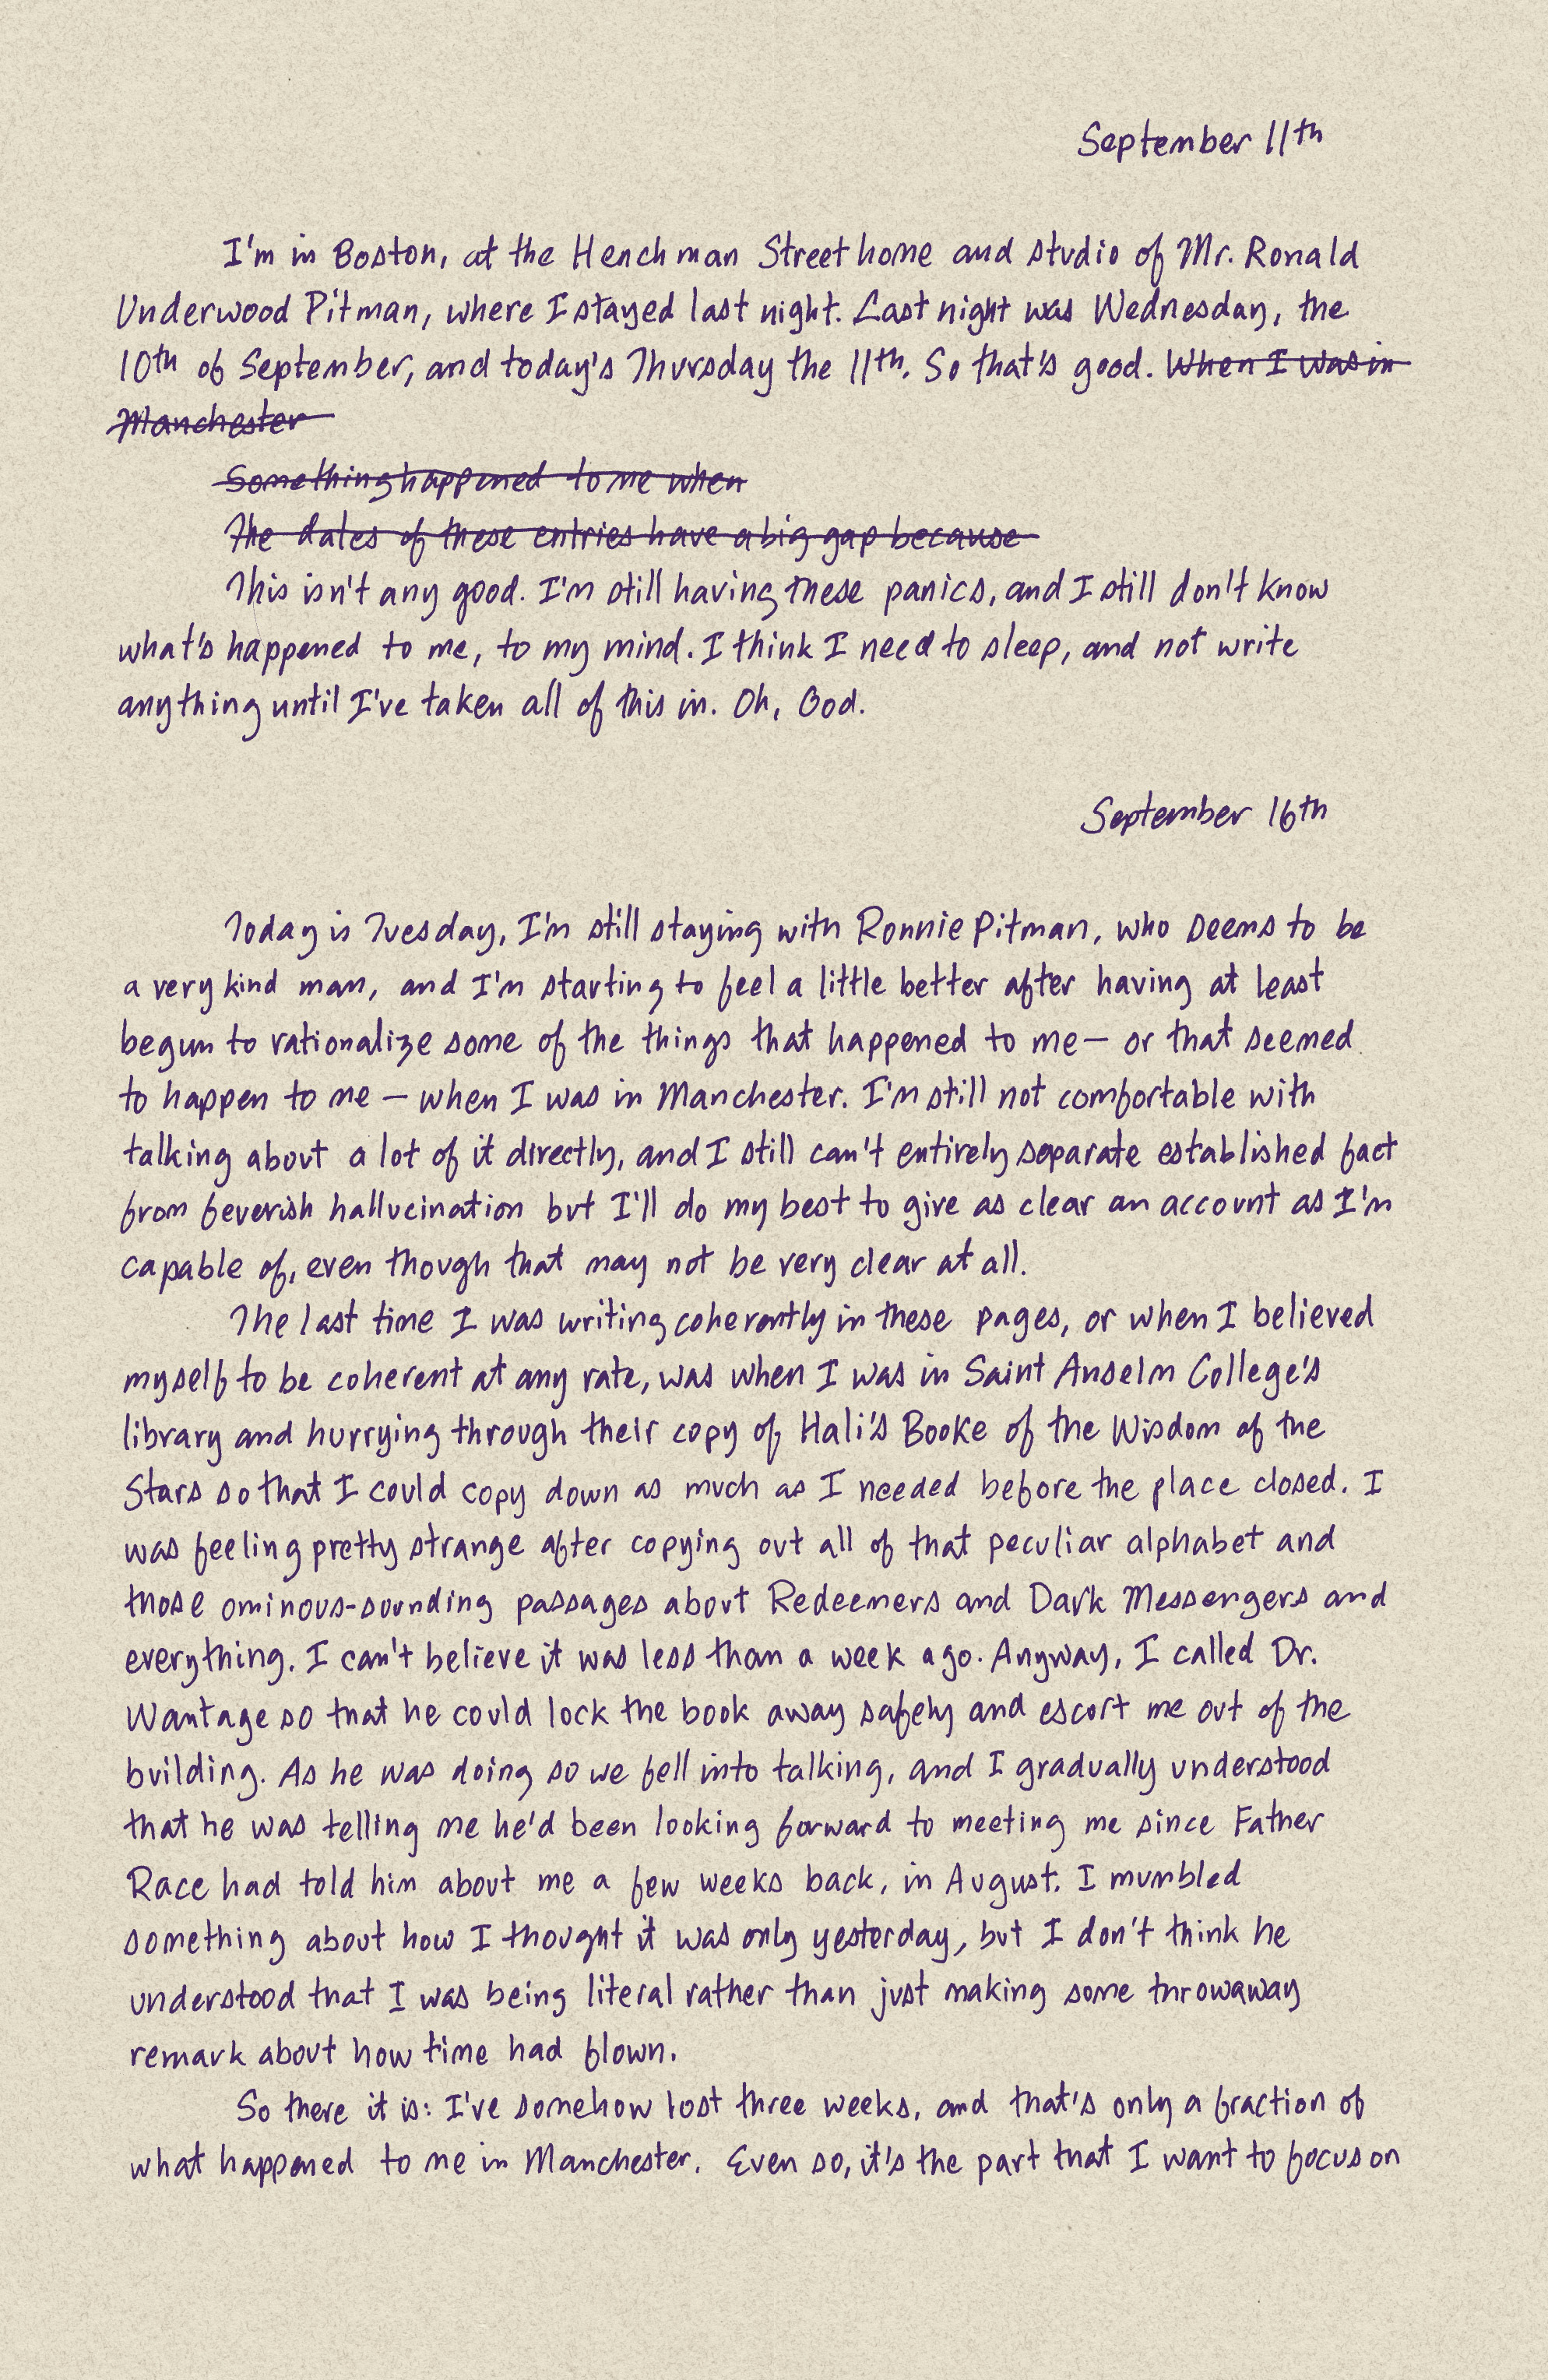 September 11th
I'm in Boston, at the Henchman Street home and studio of Mr. Ronald
Underwood Pitman, where I stayed last night. Last night was Wednesday, the
10th of September, and today's Thursday the 11th. So that's good. When I was in
Manchester
Something happened to me when
The dates of these entries have a big gap because
This isn't any good. I'm still having these panics, and I still don't know
what's happened to me, to my mind. I think I need to sleep, and not write
anything until I've taken all of this in. Oh, God.
September 16th
Today is Tuesday, I'm still staying with Ronnie Pitman, who seems to be
a very kind man, and I'm starting to feel a little better after having at least
begun to rationalize some of the things that happened to me — or that seemed
to happen to me — when I was in Manchester. I'm still not comfortable with
talking about a lot of it directly, and I still can't entirely separate established fact
from feverish hallucination but I'll do my best to give as clear an account as I'm
capable of, even though that may not be very clear at all.
The last time I was writing coherently in these pages, or when I believed
myself to be coherent at any rate, was when I was in Saint Anselm College's
library and hurrying through their copy of Hali's Booke of the Wisdom of the
Stars so that I could copy down as much as I needed before the place closed. I
was feeling pretty strange after copying out all of that peculiar alphabet and
those ominous-sounding passages about Redeemers and Dark Messengers and
everything. I can't believe it was less than a week ago. Anyway, I called Dr.
Wantage so that he could lock the book away safely and escort me out of the
building. As he was doing so we fell into talking, and I gradually understood
that he was telling me he'd been looking forward to meeting me since Father
Race had told him about me a few weeks back, in August. I mumbled
something about how I thought it was only yesterday, but I don't think he
understood that I was being literal rather than just making some throwaway
remark about how time had flown.
So there it is: I've somehow lost three weeks, and that's only a fraction of
what happened to me in Manchester. Even so, it's the part that I want to focus on